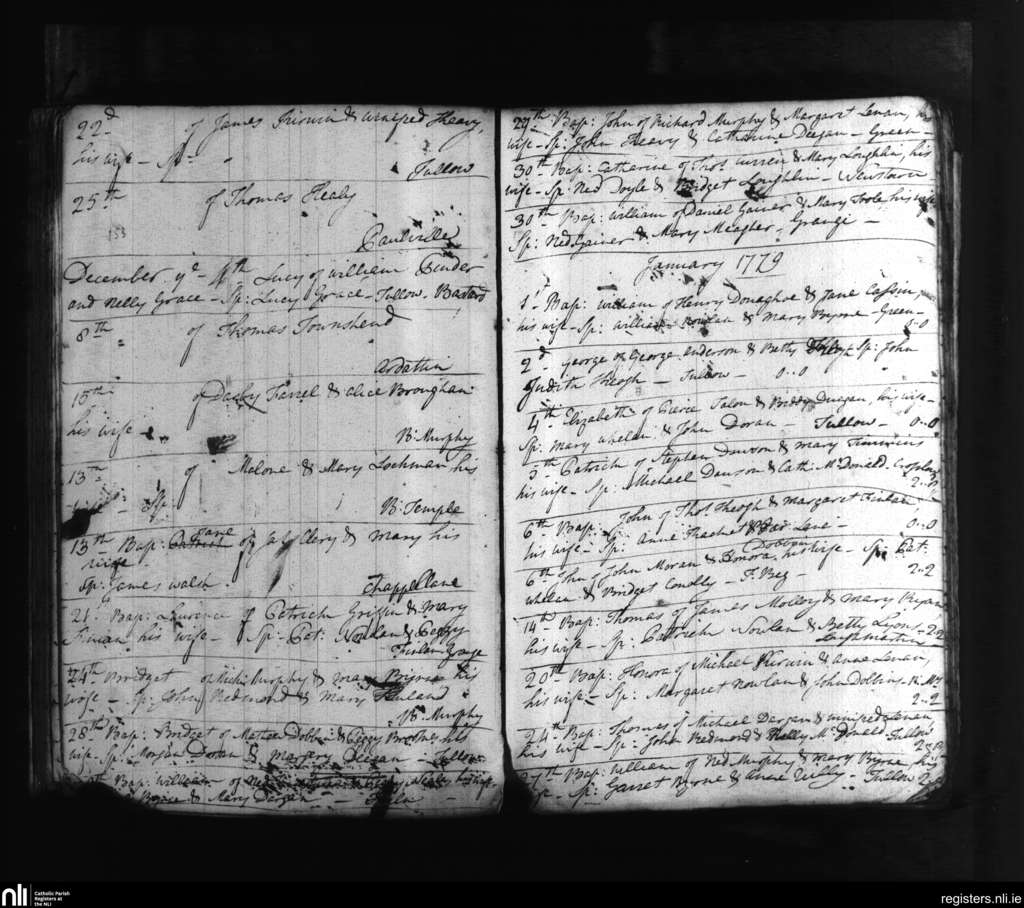 22d of James Kirwin & winifred Heavy,
his wife - Sp: -
Tullow
25th of Thomas Healy
153
Paulville
December ye 4th Lucy of william Pender
and Nelly Grace - Sp: Lucy Grace - Tullow. Bastard
8th of Thomas Townshend
Ardattin
10th of Darby Farrel & alice Broughan
his wife -
B: Murphy
13th of Malone & Mary Lochman his
wife - Sp:
B: Temple
Jane
13th Bap: of Clery & mary his
wife
Sp: James walsh.
Chappel lane
21. Bap: Laurence of Patrick Griffin & Mary
his wife - Sp: Pat: Nowlan & Peggy
Finlan Grange
24th Bridget of Mich: Murphy & mary Byrne his
wife - Sp: John Redmond & Mary
B: Murphy
28th Bap: Bridget of Mathew Dobbin & Peggy his
wife. Sp: Morgan Doran & Margery Deegan - Tullow
Bap: william of Ned
Byrne & Mary Dargan -
29th Bap: John of Richard Murphy & Margaret Levan, his
wife - Sp: John Heavy & Catharine Deegan - Green -
30th Bap: Catherine of Thos: Curren & Mary Loughlin, his
wife - Sp: Ned Doyle & Bridget Loughlin - Newtown
30th Bap: william of Daniel Gainer & Mary Toole his wife
Sp: Ned Gainer & Mary Meagher - Grange -
January 1779
1st Bap: william of Henry Donaghoe & Jane Cassin,
his wife - Sp: william Nowlan & Mary Byrne - Green -
0-0
2d George of George anderson & Betty Sp: John
Judith Kheogh - Tullow - 0..0
4th Elizabeth of Pierce Talon & Biddy Duegan, his wife -
Sp: Mary whelan & John Doran - Tullow - 0..0
5th Patrick of Stephen Dawson & mary Timmins
his wife - Sp: Michael Dawson & Cath: McDonald
2..0
6th Bap: John of Thos: Kheogh & Margaret Finlan,
his wife - Sp: Anne & Lane - 0..0
Dobbin
6th John of John Moran & Honora his wife - Sp: Pat:
whelan & Bridget Conolly - F. Beg - 2..2
14th Bap: Thomas of James Molloy & mary Ryan
his wife - Sp: Patrick Nowlan & Betty Lyons - 2..2
20th Bap: Honora of Michael Kirwin & anne Levan,
his wife - Sp: Margaret Nowlan & John Dobbins
2..2
24th Bap: Thomas of Michael Dargan & winifred Levan
his wife - Sp: John Redmond & Nelly McDonald Tullow
27th Bap: william of Ned Murphy & mary Byrne, his
wife - Sp: Garret Byrne & Anne Reilly - Tullow
nli
Catholic Parish
Registers at
the NLI
registers.nli.ie